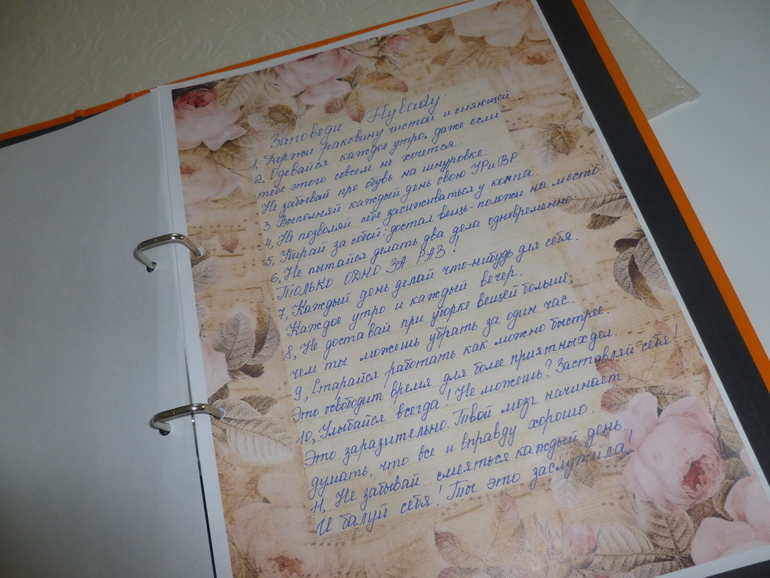 Заповеди Flylady:
1, Держи раковину чистой и сияющей
2. Одевайся каждое утро, даже если
тебе этого совсем не хочется.
Не забывай про обувь на шнуровке.
3. Выполняй каждый день свою УРиВР.
4, Не позволяй себе засиживаться у компа
5. Убирай за собой: достал вещь-положи на место
6, Не пытайся делать два дела одновременно.
ТОЛЬКО ОДНО ЗА РАЗ!
7, Каждый день делай что-нибудь для себя.
Каждое утро и каждый вечер.
8, Не доставай при уборке вещей больше,
чем ты можешь убрать за один час.
9, Старайся работать как можно быстрее.
Это освободит время для более приятных дел.
10, Улыбайся всегда! Не можешь? Заставляй себя!
Это заразительно. Твой мозг начинает
думать, что все и вправду хорошо.
11, Не забывай смеяться каждый день.
И балуй себя! Ты это заслужила!